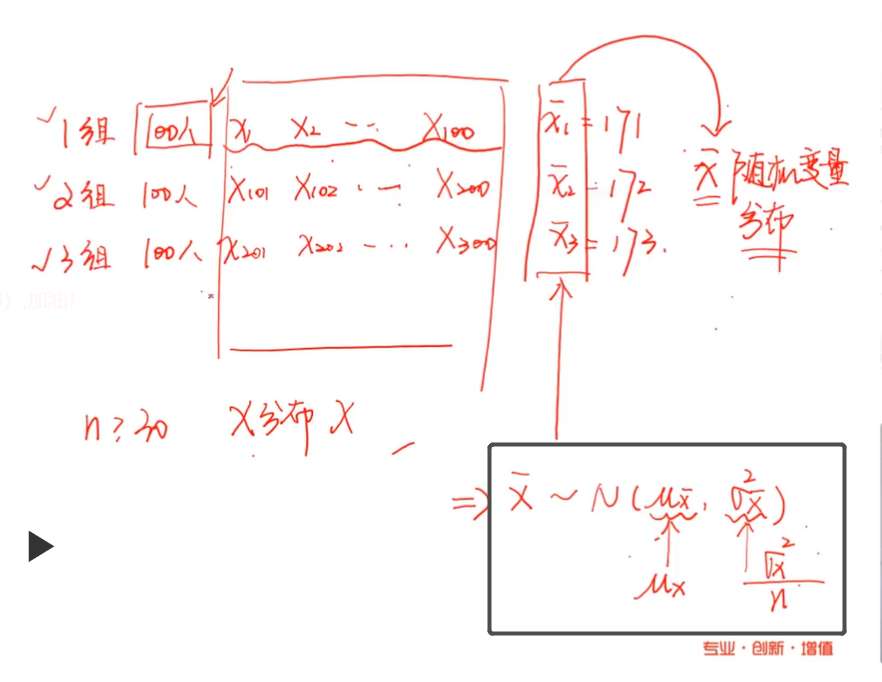 1组 100人 x₁ x₂ ... x₁₀₀ x̄₁ = 171
2组 100人 x₁₀₁ x₁₀₂ ... x₂₀₀ x̄₂ = 172
3组 100人 x₂₀₁ x₂₀₂ ... x₃₀₀ x̄₃ = 173.
x̄ 随机变量
分布
n ≥ 30 X分布 X
⇒ x̄ ~ N(μx̄, σ²x̄)
μx σx²/n
专业·创新·增值